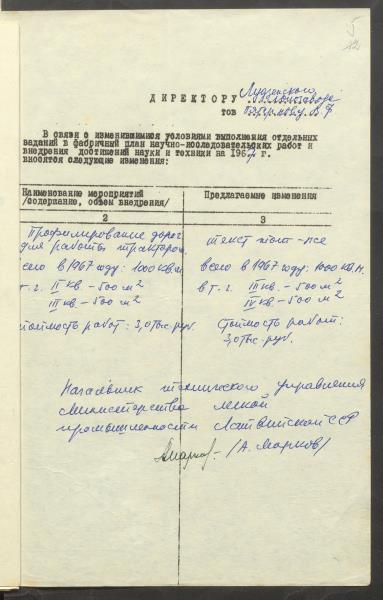 5
12
ДИРЕКТОРУ Лудзенского
льнозавода
тов
В связи с изменившимися условиями выполнения отдельных
заданий в фабричный план научно-исследовательских работ и
внедрения достижений науки и техники на 1967 г.
вносятся следующие изменения:
Наименование мероприятий
/содержание, объем внедрения/
Предлагаемые изменения
2
3
Профилирование дорог
для работы трактором
всего в 1967 году: 1000 кв.м
т.ч. II кв. - 500 м2
III кв. - 500 м2
тоимость работ: 3,0 тыс. руб.
текст тот-же
всего в 1967 году: 1000 кв.м.
в т.ч. III кв. - 500 м2
IV кв. - 500 м2
Стоимость работ:
3,0 тыс. руб.
Начальник технического управления
Министерства легкой
промышленности Латвийской ССР
/А. Марков/